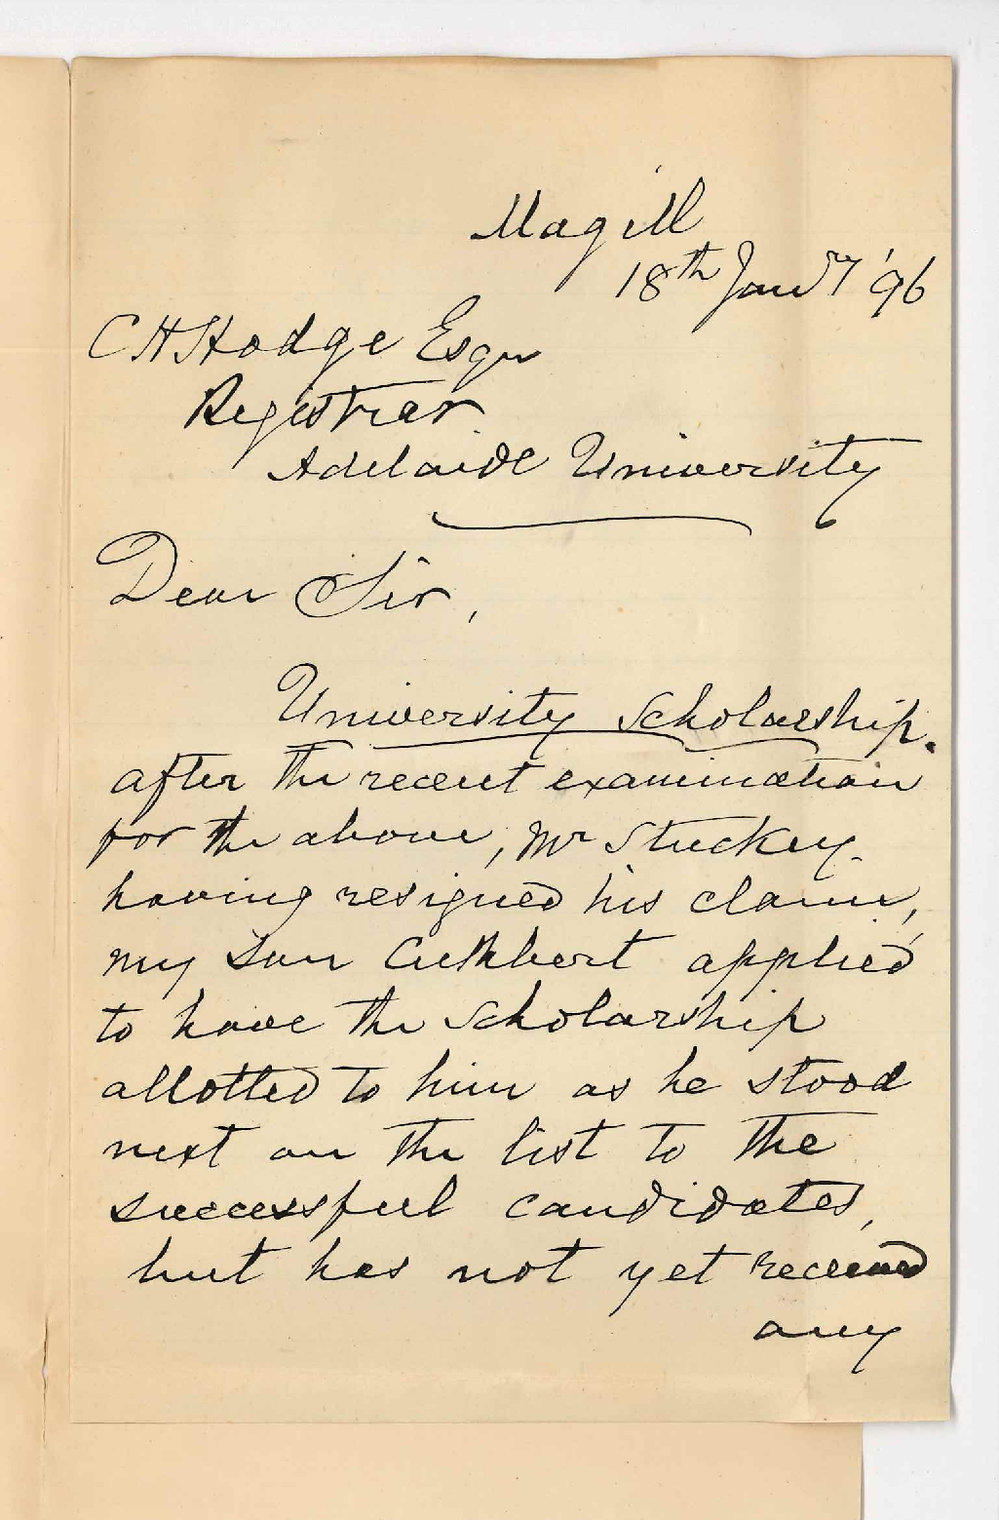 Magill
18th Jany '96
C H Hodge Esqr
Registrar
Adelaide University
Dear Sir,
University Scholarship.
after the recent examination
for the above, Mr Stuckey
having resigned his claim,
my son Cuthbert applied
to have the Scholarship
allotted to him as he stood
next on the list to the
successful candidates,
but has not yet received
any